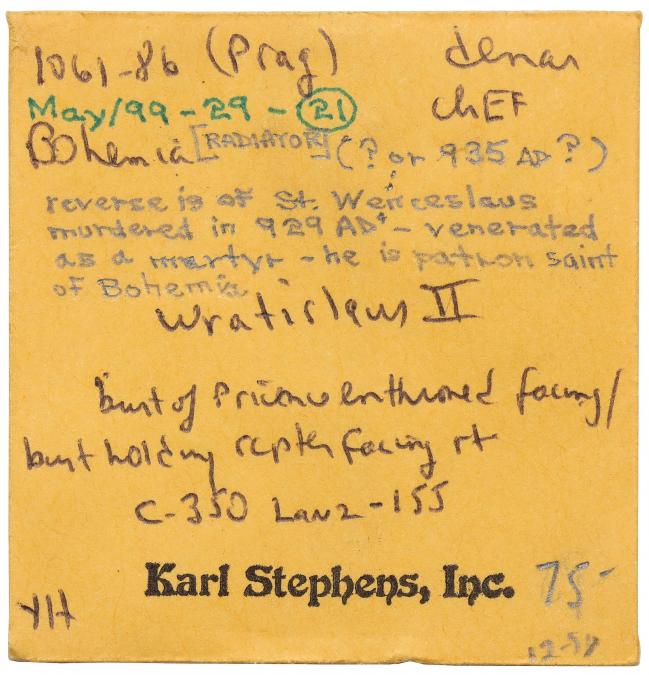 1061-86 (Prag) denar
May/99-29-21 chEF
Bohemia [RADIATOR] (? or 935 AD?)
reverse is of St. Wenceslaus
murdered in 929 AD - venerated
as a martyr - he is patron saint
of Bohemia
Wratislaus II
bust of Prince enthroned facing/
bust holding scepter facing rt
C-350 Lanz-155
Karl Stephens, Inc. 75-
YIH